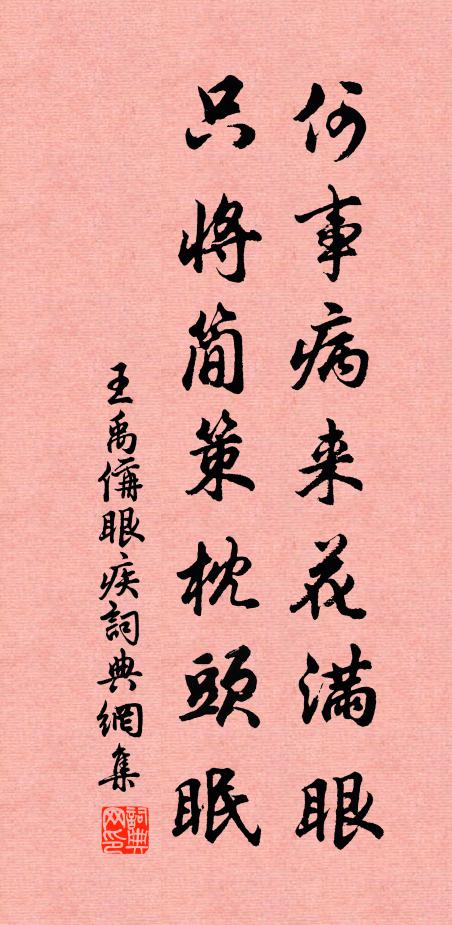 何事病来花满眼
只将简策枕頭眠
王禹偁眼疾詞典網集
詞典网印